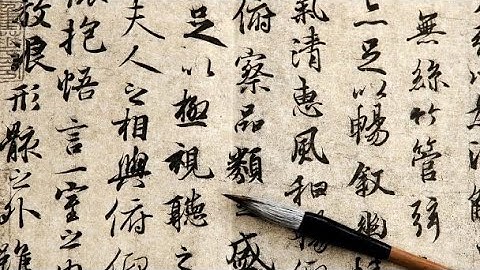 以為流
無絲竹管弦
亦足以暢敘幽
氣清惠風和暢
俯察品類之盛
足以極視聽之
夫人之相與俯仰
懷抱悟言一室之內
放浪形骸之外雖